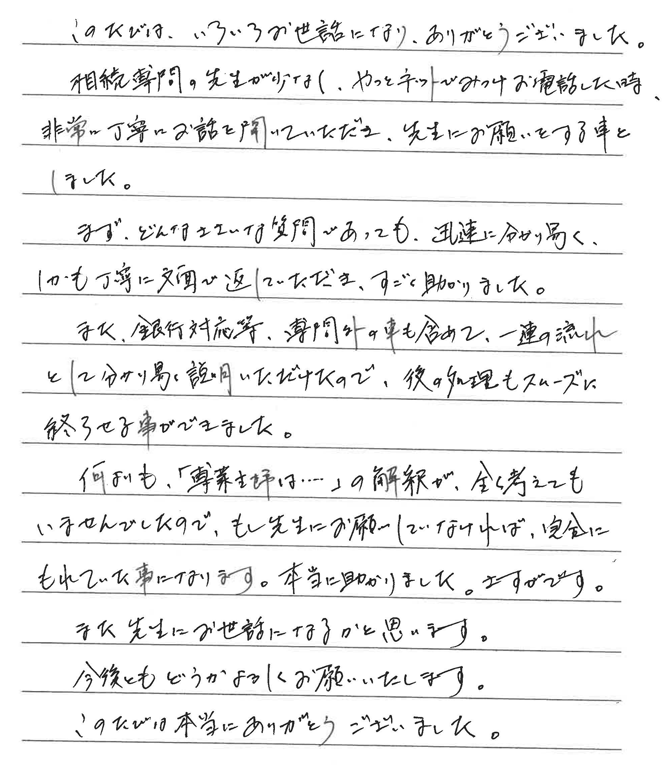 このたびは、いろいろお世話になり、ありがとうございました。
相続専門の先生が少なく、やっとネットでみつけお電話した時、
非常に丁寧にお話を聞いていただき、先生にお願いをする事と
しました。
まず、どんなささいな質問であっても、迅速に分かり易く、
しかも丁寧に文面で返していただき、すごく助かりました。
また、銀行対応等、専門外の事も含めて、一連の流れ
として分かり易く説明いただけたので、後の処理もスムーズに
終らせる事ができました。
何よりも、「専業主婦は……」の解釈が、全く考えても
いませんでしたので、もし先生にお願いしていなければ、完全に
もれていた事になります。本当に助かりました。さすがです。
また先生にお世話になるかと思います。
今後ともどうかよろしくお願いいたします。
このたびは本当にありがとうございました。